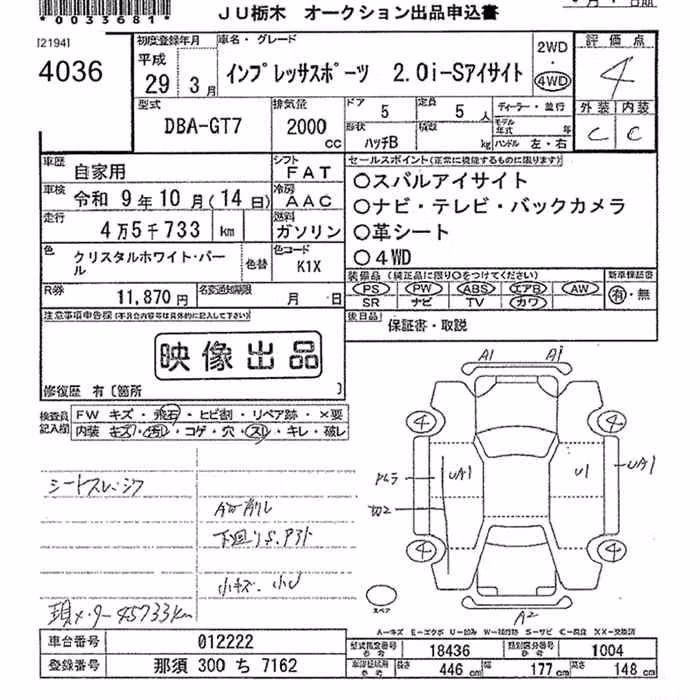 *0033681*
JU栃木 オークション出品申込書
[2194]
4036
初度登録年月
平成
29年 3月
車名・グレード
インプレッサスポーツ 2.0i-Sアイサイト
2WD
・
4WD
評価点
4
外装 内装
C C
型式
DBA-GT7
排気量
2000
cc
ドア 5
定員 5 人
形状 ハッチB
積数 kg
ディーラー・並行
モデル年式 年
ハンドル 左・右
車歴
自家用
シフト
FAT
車検
令和 9年 10月(14日)
冷房
AAC
走行
4万5千733 km
燃料
ガソリン
色
クリスタルホワイト・パール
色替
色コード
K1X
R券
11,870円
名変通知期限
月 日
セールスポイント(正常に機能するものに限ります)
○スバルアイサイト
○ナビ・テレビ・バックカメラ
○革シート
○4WD
装備品 (純正品に限り○をつけてください)
PS PW ABS エアB AW
SR ナビ TV カワ
新車保証書
有・無
後日品
保証書・取説
注意事項申告欄(不具合内容等は具体的に記入して下さい)
映像出品
修復歴 有〔箇所 〕
検査員記入欄
FW キズ・飛石・ヒビ割・リペア跡・×要
内装 キズ・汚レ・コゲ・穴・スレ・キレ・破レ
シートスレ・シワ
下廻りS.
小キズ.小U
現メーター45733km
A1 A1
4 4
UA1
U1
UA1
切2
4 4
スペア
A2
A-キズ E-エクボ U-凹み W-補修跡 S-サビ C-腐食 XX-交換済
車台番号
012222
登録番号
那須 300 ち 7162
型式指定番号
参考
18436
類別区分番号
参考
1004
車庫証明用
参考
長さ 446cm
幅 177cm
高さ 148cm